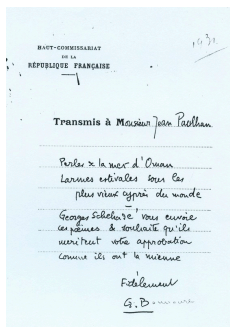 193
HAUT-COMMISSARIAT
DE LA
RÉPUBLIQUE FRANÇAISE
Transmis à Monsieur Jean Paulhan
Perles de la mer d'Oman
Larmes estivales sous les
plus vieux cyprès du monde
Georges Schehadé vous envoie
ces poèmes & souhaite qu'ils
méritent votre approbation
comme ils ont la mienne
Fidèlement
G. Bounoure